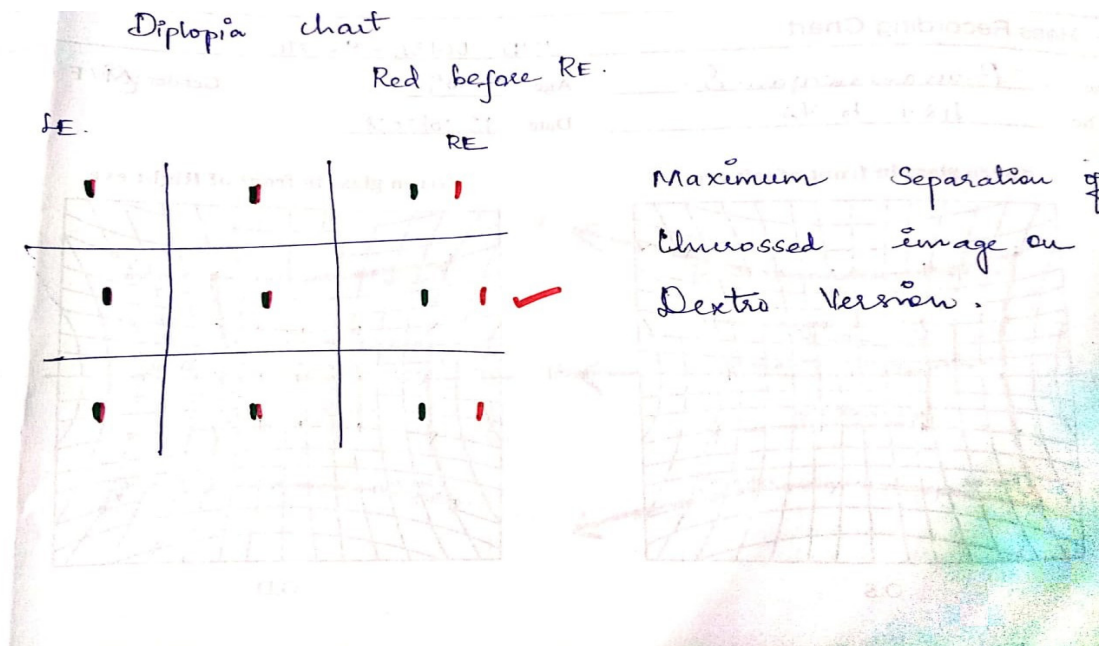 Diplopia chart
Red before RE.
LE.
RE
Maximum Separation of
Uncrossed image on
Dextro Version.
O.S